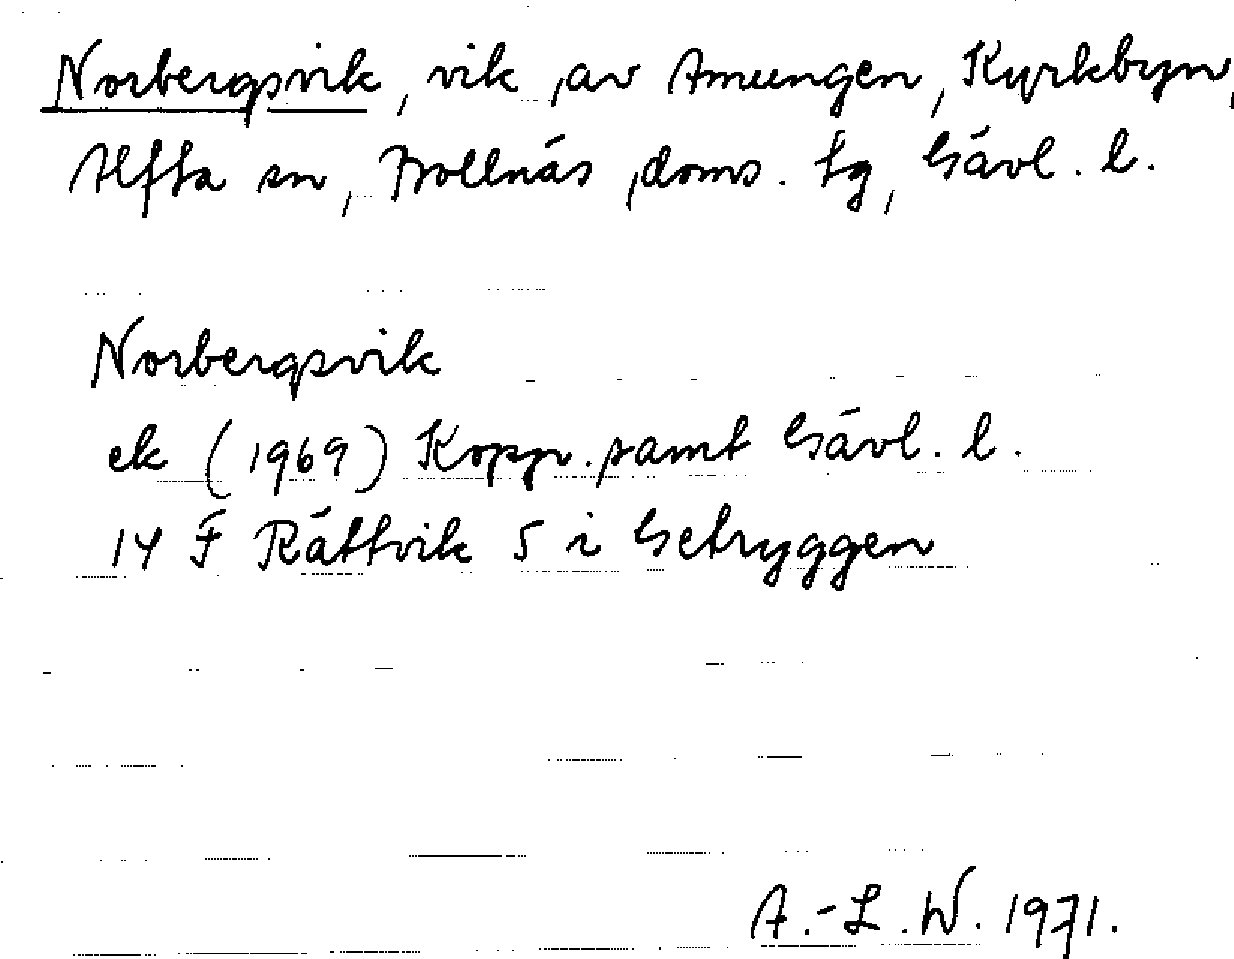 Norbergsvik, vik av Amungen, Kyrkbyn,
Alfta sn, Bollnäs doms. tg, Gävl. l.
Norbergsvik
ek (1969) Kopp. samt Gävl. l.
14 F Rättvik 5 i Getryggen
A.-L. W. 1971.